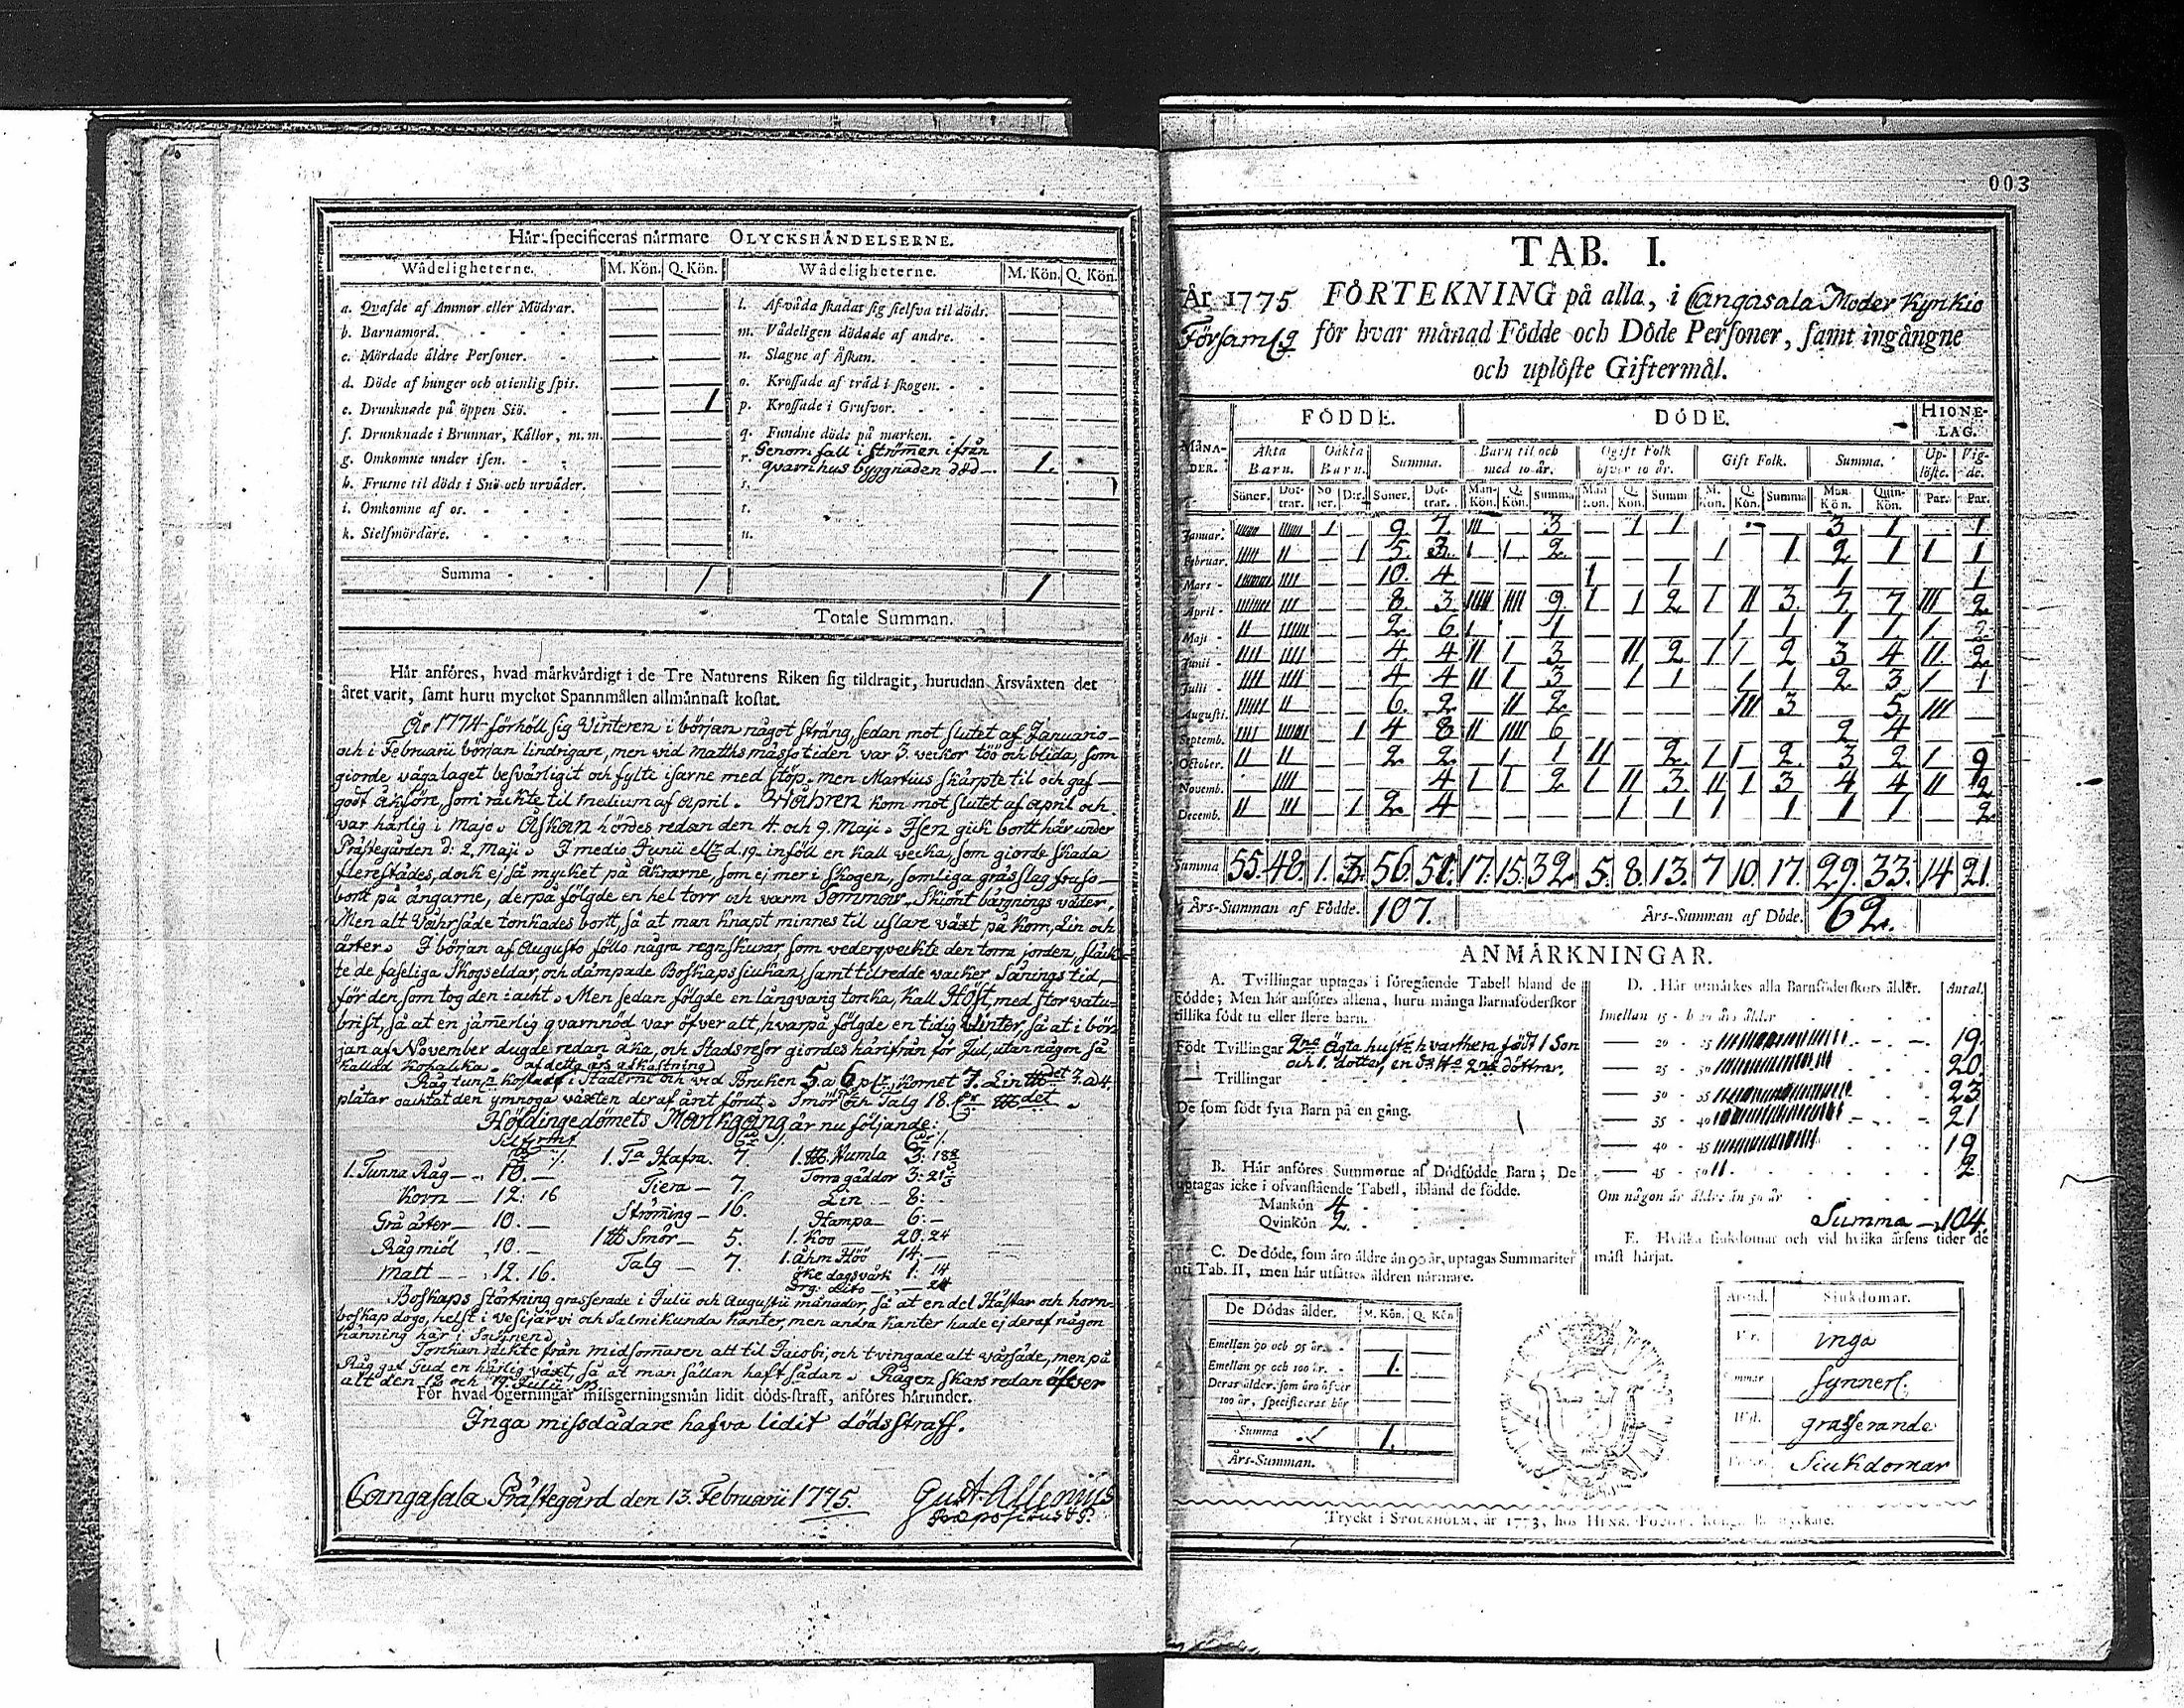 Hår specificeras nårmare OLYCKSHÅNDELSERNE.
Wådeligheterne. M. Kön. Q. Kön. Wådeligheterne. M. Kön. Q. Kön.
a. Qvafde af Ammor eller Mödrar. — — l. Af våda skadat sig sielfva til döds. — —
b. Barnamord. — — m. Vådeligen dödade af andre. — —
c. Mördade åldre Personer. — — n. Slagne af Åskan. — —
d. Döde af hunger och otienlig spis. — — o. Krossade af tråd i skogen. — —
e. Drunknade på öppen Siö. — 1 p. Krossade i Grufvor. — —
f. Drunknade i Brunnar, Kållor, m. m. — — q. Fundne döde på marken. — —
g. Omkomne under isen. — — r. Genom fall i strömen ifrån qvarnhus byggnaden död — 1. —
h. Frusne til döds i Snö och urvåder. — — s.
i. Omkomne af os. — — t.
k. Sielfmördare. — — u.
Summa 1 1
Totale Summan.
Hår anföres, hvad mårkvårdigt i de Tre Naturens Riken sig tildragit, hurudan Årsvåxten det
året varit, samt huru myckot Spannmålen allmånnast kostat.
År 1774 förhöll sig Vinteren i början något sträng, sedan mot slutet af Januario
och i Februarii början lindrigare, men vid Matthsmässo tiden var 3 veckor töö och blida, som
giorde vägalaget besvärligit och fylte isarne med stöp. men Martius skärpte til och gaf
godt åkföre, som räckte til medium af April. Wåhren kom mot slutet af April och
var härlig i Majo. Åskan hördes redan den 4. och 9. Maji. Isen gick bortt här under
Prästegården d. 2. Maji. I medio Junii ell. d. 19. inföll en kall vecka, som giorde skada
flerestädes, dock ej så mycket på Åkrarne, som ej mer i Skogen, somliga grässlag fruso
bortt på ängarne, derpå fölgde en hel torr och varm Sommar. Skiönt bärgnings väder.
Men alt Våhrsäde torkades bortt, så at man knapt minnes til uslare växt på Korn, Lin och
ärter. I början af Augusto föllo några regnskurar, som vederqveckte den torra jorden, släck-
te de faseliga Skogseldar, och dämpade Boskapssiukan, samt tilredde vacker Sånings tid,
för den som tog den i ackt. Men sedan fölgde en långvarig torka, kall Höst, med stor vatu-
brist, så at en jämerlig qvarnnöd var öfver alt, hvarpå fölgde en tidig Winter, så at i bör-
jan af November dugde redan åka, och Stadsresor giordes härifrån för Jul, utan någon så
kallad Kopalika. af detta års afkastning
Råg tun. kostade i Städerne och vid Bruken 5 a 6 plr, Kornet 7. Lin
plåtar oachtat den ymnoga växten deraf ånt förut. Smör och Talg 18.
Höfdingedömets Markgång är nu följande:
1. Tunna Råg — 10. — 1. Ta Hafra. 7. Humla 3: 18
Korn — 12: 16 Tiera — 7. Torra gäddor 3: 21
Grå ärter — 10. — Strömming — 16. Lin — 8: —
Rågmiöl 10. — Smör — 5. Hampa — 6: —
Malt — 12. 16. Talg — 7. 1. Koo — 20: 24
1. åhm Höö 14: —
öke dagsvärk 1. 14
Drg. Dito — 24
Boskaps störtning grasserade i Julii och Augustii månader, så at en del Hästar och horn-
boskap dogo, helst i Vesijärvi och Salmikunda kanter, men andra kanter hade ej deraf någon
känning här i Socknen.
Torkan räckte från midsomaren alt til Jacobi, och tvingade alt vårsäde, men på
Råg gaf Gud en härlig växt, så at man sällan haft sådan. Rågen skars redan öfver
alt den 18 och 19 Julii
För hvad ogerningar missgerningsmån lidit döds-straff, anföres hårunder.
Inga missdådare hafva lidit dödsstraff.
Cangasala Prästegård den 13. Februarii 1775.
Gust. Allenius
Præpositus & P.
003
TAB. I.
År 1775 FÖRTEKNING på alla, i Cangasala Moder Kyrkio
Församlg för hvar månad Födde och Döde Personer, samt ingångne
och uplöste Giftermål.
MÅNADER. FÖDDE. DÖDE. HIONELAG.
Åkta Barn. Oåkta Barn. Summa. Barn til och med 10 år. Ogift Folk öfver 10 år. Gift Folk. Summa. Uplöste. Vigde.
Söner. Dottrar. Söner. Dtr. Söner. Dottrar. Man-Kön. Q. Kön. Summa Man Kön. Q. Kön. Summ M. Kön. Q. Kön. Summa Man Kön. Quin-Kön. Par. Par.
Januar. 1 — 9 7 III — 3 — 1 1 — 3 1 — 1
Februar. IIIII II — 1 5. 3. 1 1 2 — — — 1 1 2 1 1 1
Mars IIII — — 10. 4 — — — 1 1 1 1
April III — — 8. 3 IIIII IIII 9. 1 1 2 1 II 3. 7 7 III 2
Maji II IIIIII — — 2 6 1 1 1 1 1 1 1 2
Junii IIII IIII — — 4. 4 II 1 3 — II 2 1 1 2 3 4 II. 2
Julii IIII IIII — — 4 4 II 1 3 — 1 1 1 1 2 3 1 1
Augusti. II — — 6. 2 II 2 — III 3 5 III —
Septemb. IIII — 1 4 8 II IIII 6 — 2 4 —
October. II II — — 2 2 — 1 1 II 2 1 1 2 3 2 1 9
Novemb. IIII — — 4 1 1 2 1 II 3 II 1 3 4 4 II 2
Decemb. II III — 1 2 4 — — — 1 1 1 1 1 1 — 2
Summa 55. 48. 1. 3. 56. 51. 17. 15. 32. 5. 8. 13. 7 10 17. 29. 33. 14 21.
Års-Summan af Födde. 107. Års-Summan af Döde. 62.
ANMÅRKNINGAR.
A. Tvillingar uptagas i föregående Tabell bland de
Födde; Men hår anföres allena, huru många Barnaföderskor
tillika födt tu eller flere barn.
Födt Tvillingar 2ne ägta hustr. hvarthera födt 1 Son
och 1. dotter, en 2ne döttrar.
— Trillingar
De som födt fyra Barn på en gång.
B. Hår anföres Summorne af Dödfödde Barn; De
uptagas icke i ofvanstående Tabell, ibland de födde.
Mankön 4
Qvinkön 2
C. De döde, som åro åldre ån 90 år, uptagas Summariter
uti Tab. II, men hår utsåttes åldren nårmare.
De Dödas ålder. M. Kön. Q. Kön
Emellan 90 och 95 år. — —
Emellan 95 och 100 år. 1. —
Deras ålder, som åro öfver
100 år, specificeras hår — —
Summa 1.
Års-Summan.
D. Hår utmårkes alla Barnföderskors ålder. Antal.
Imellan 15 - 20 års ålder
— 20 - 25 19.
— 25 - 30 20.
— 30 - 35 23
— 35 - 40 21
— 40 - 45 19
— 45 - 50 II. 2
Om någon år åldre ån 50 år
Summa — 104.
E. Hvilka siukdomar och vid hvilka årsens tider de
måst hårjat.
Årstid. Siukdomar.
Vår. inga
Sommar synnerl.
Höst. grasserande
Vinter. Siukdomar
Tryckt i STOCKHOLM, år 1773, hos HENR. FOUGT, Kongl. Boktryckare.